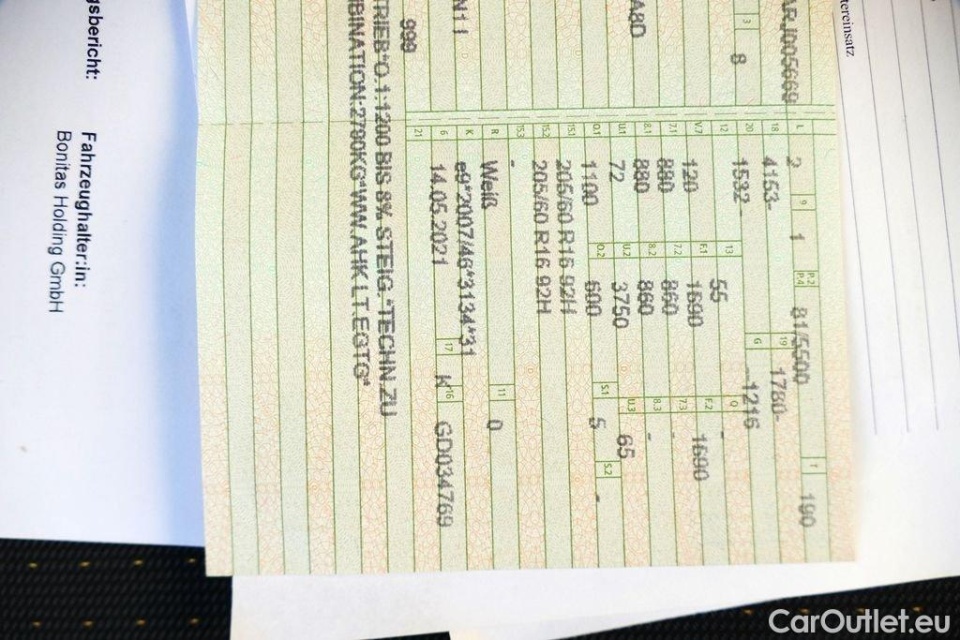 tereinsatz
ARJ005669
L 2 9 1 P.2 P.4 81/5500 T 190
18 4153- 19 1780-
3 8 20 1532- G -1216
12 - 13 55 Q -
V.7 120 F.1 1690 F.2 1690
7.1 880 7.2 860 7.3 -
A8D 8.1 880 8.2 860 8.3 -
U.1 72 U.2 3750 U.3 65
O.1 1100 O.2 600 S.1 5 S.2 -
15.1 205/60 R16 92H
15.2 205/60 R16 92H
15.3 -
R Weiß 11 0
N11 K e9*2007/46*3134*31
6 14.05.2021 17 K 16 GD034769
999 21
TRIEB*O.1:1200 BIS 8% STEIG.*TECHN.ZU
BINATION:2790KG*WW.AHK LT.EGTG*
gsbericht: Fahrzeughalter:in:
Bonitas Holding GmbH
CarOutlet.eu